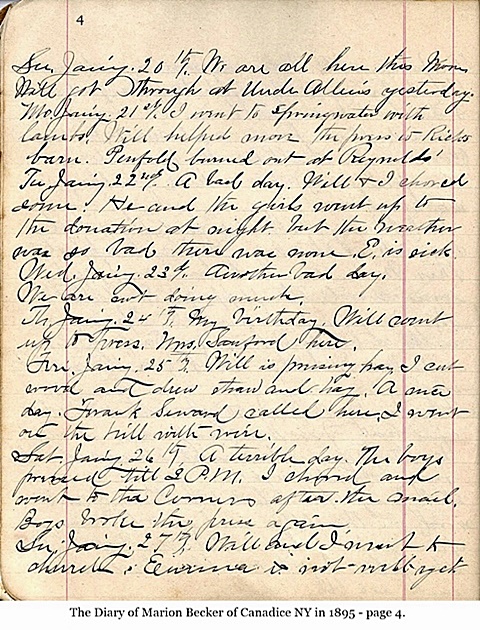 4
Su. Jan'y. 20th/. We are all here this Morn
Will got through at Uncle Allen's yesterday.
Mo. Jan'y. 21st/. I went to Springwater with
lambs. Will helped move the press to Rich's
barn. Penfold burned out at Reynolds'
Tu Jan'y. 22nd/. A bad day. Will & I chored
some. He and the girls went up to
the donation at night but the weather
was so bad there was none. E. is sick.
Wed. Jan'y. 23d/. Another bad day.
We are not doing much.
Th. Jan'y. 24th/. My birthday. Will went
up to press. Mrs. Sanford here.
Fri. Jan'y. 25th/. Will is pressing hay I cut
wood and drew straw and hay. A nice
day. Frank Seward called here, I went
on the hill with wire.
Sat Jan'y 26th/. A terrible day. The boys
pressed till 2 P.M. I chored and
went to the Corners after the mail.
Boys broke the press again.
Su. Jan'y. 27th/. Will and I went to
church. Emma is not well yet
The Diary of Marion Becker of Canadice NY in 1895 - page 4.